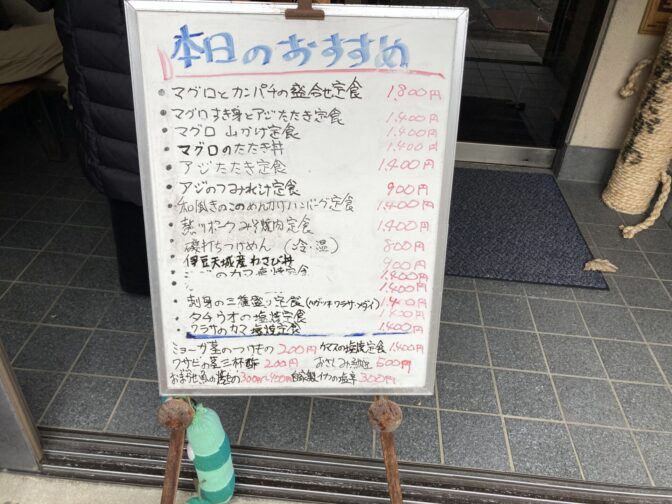 本日のおすすめ
マグロとカンパチの盛合せ定食 1,800円
マグロすき身とアジたたき定食 1,400円
マグロ山かけ定食 1,400円
マグロのたたき丼 1,400円
アジたたき定食 1,400円
アジのつみれ汁定食 900円
和風きのこのめんちハンバーグ定食 1,400円
豚肉定食 1,400円
磯打ちつけめん (冷・温) 800円
伊豆天城産わさび丼 900円
カマ塩焼定食 1,400円
1,400円
刺身の三種盛り定食 1,400円
タチウオの塩焼定食 1,400円
ワラサのカマ塩焼定食 1,400円
ミョーガ茎のつけもの 200円 塩焼定食 1,400円
ワサビの茎三杯酢 200円 おさしみ 500円
300円〜400円 自家製イカの塩辛 300円